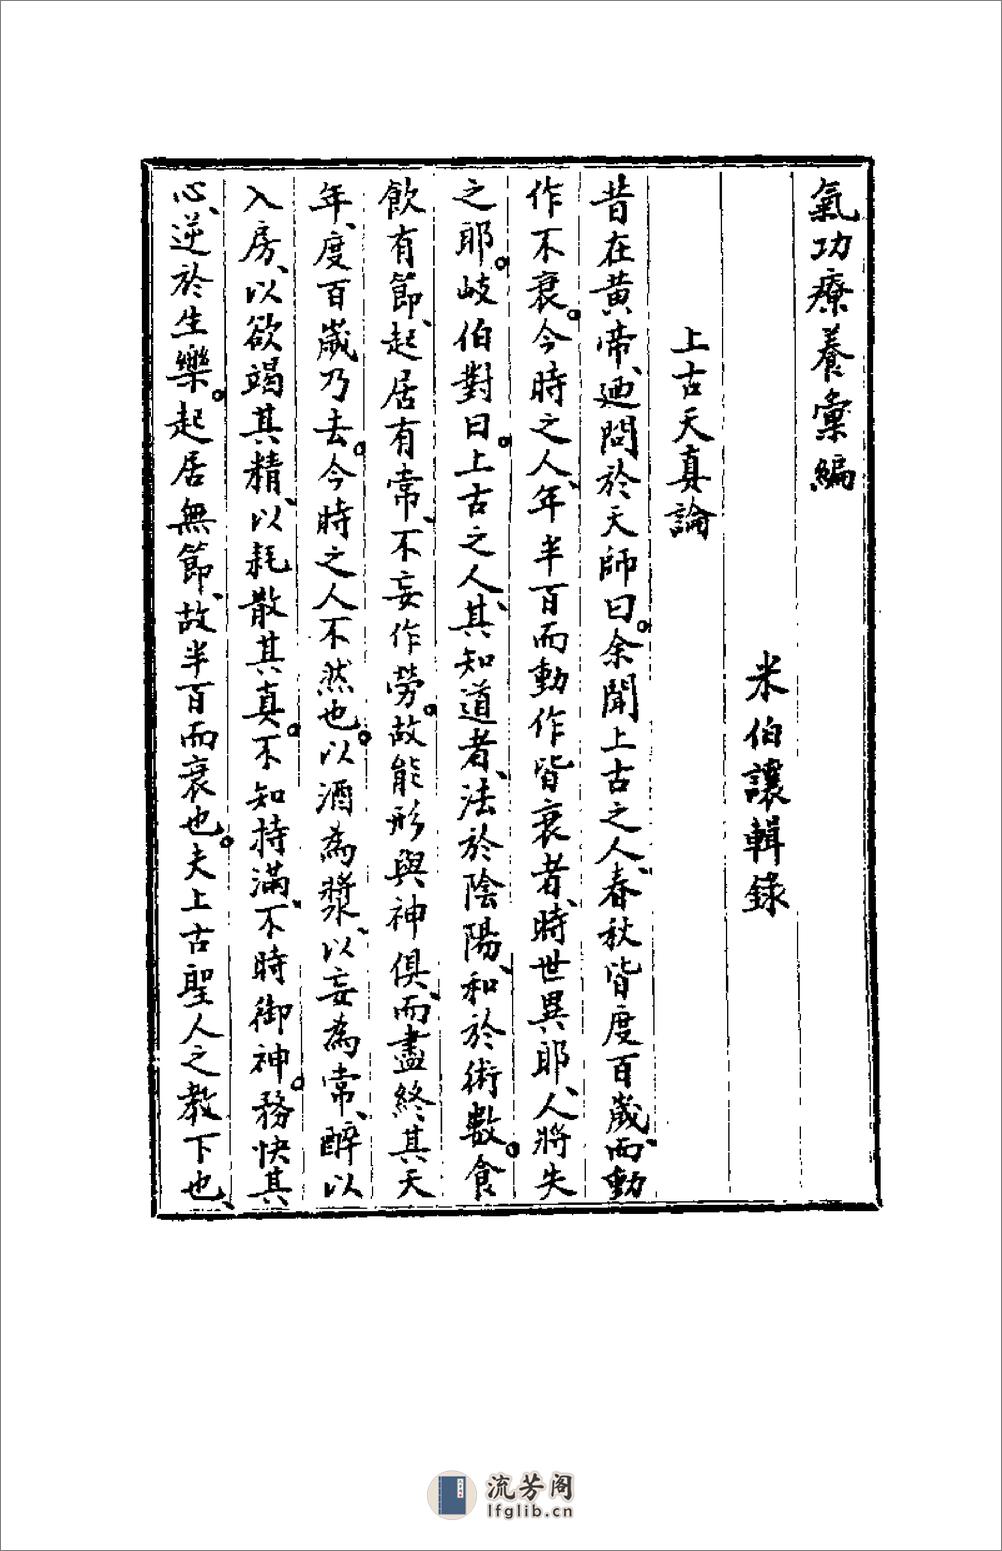 氣功療養彙編
米伯讓輯錄
上古天真論
昔在黃帝、迺問於天師曰。余聞上古之人、春秋皆度百歲、而動
作不衰。今時之人、年半百而動作皆衰者、時世異耶、人將失
之耶。岐伯對曰。上古之人、其知道者、法於陰陽、和於術數。食
飲有節、起居有常、不妄作勞。故能形與神俱、而盡終其天
年、度百歲乃去。今時之人不然也。以酒為漿、以妄為常、醉以
入房、以欲竭其精、以耗散其真。不知持滿、不時御神。務快其
心、逆於生樂。起居無節、故半百而衰也。夫上古聖人之教下也、
流芳阁
lfglib.cn